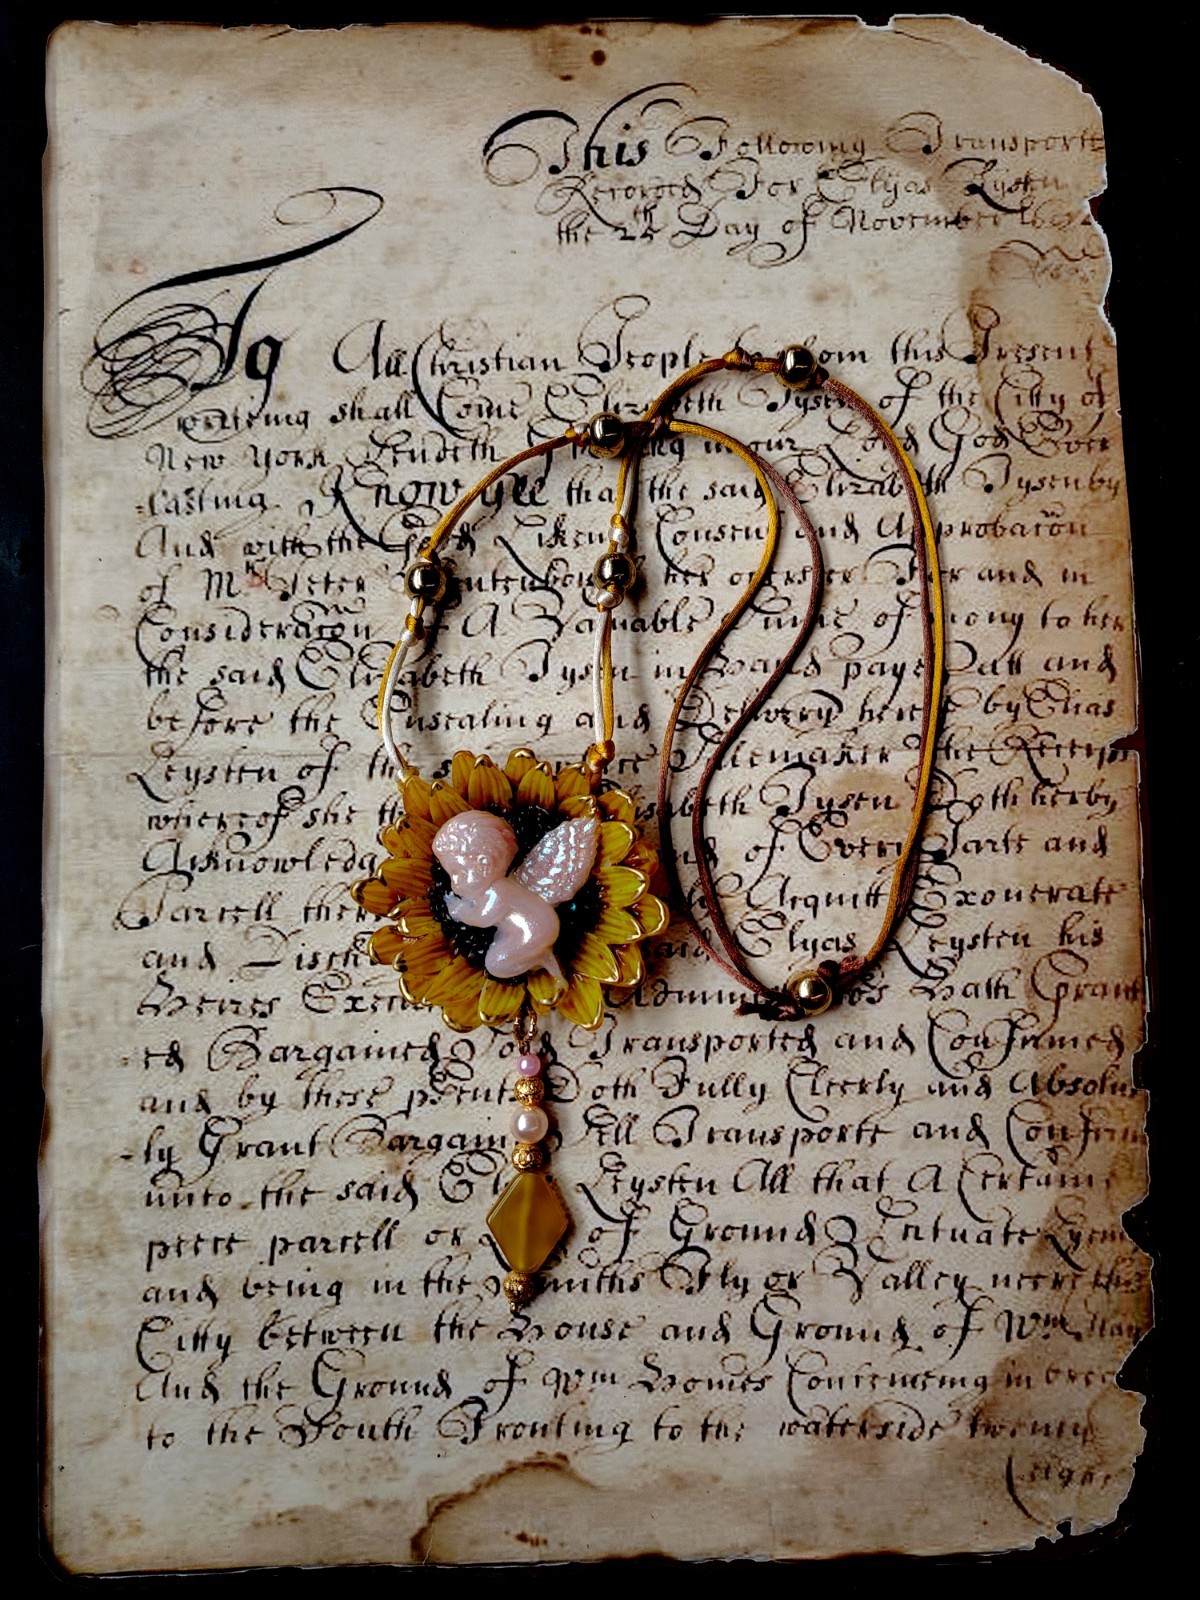 This Following Transporte
Recorded For Elyas Leysten
the 24th Day of November
To All Christian People whom this Present
writeing shall Come Elizabeth Tysen of the Citty of
New York Sendeth in our Lord God Ever
-lasting Know yee that the said Elizabeth Tysen by
And with the Good Likeing Consent and Approbacon
of Mr Peter her and in
Consideracon of A Valuable Sume of mony to her
the said Elizabeth Tysen in hand paye Datt and
before the Ensealing and Delivery here by Elias
Leysten of the the Receipt
whereof she Elisabeth Tysen Doth herby
Acknowledg and of Every Parte and
Parcell there Acquitt Exonerate
and Disch said Elyas Leysten his
Heires Exec Admin Hath Grant
ed Bargained Sold Transported and Confirmed
and by these psents Doth Fully Cleerly and Absolu
-ly Grant Bargain Sell Transporte and Confirm
unto the said Leysten All that A Certaine
peece parcell or of Ground Scituate Lyein
and being in the Smiths Fly or Valley neere this
Citty between the House and Ground of Wm
And the Ground of Wm Homes Conteineing in
to the South Fronting to the waterside twenty
Eight